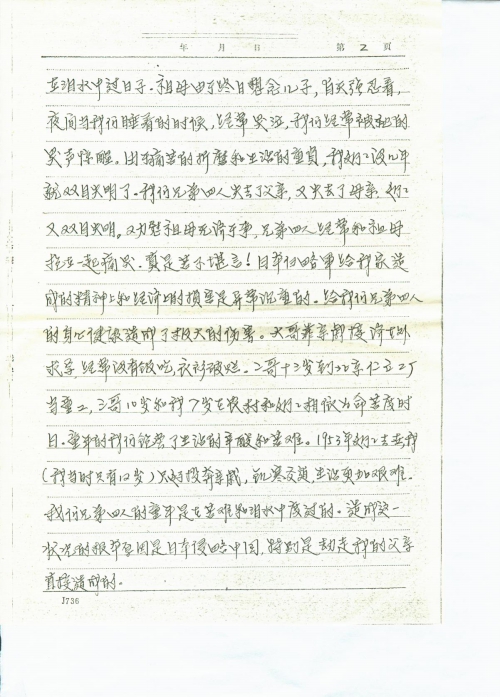 年 月 日 第 2 页
在泪水中过日子。祖母由于终日想念儿子，白天强忍着，
夜间当我们睡着的时候，经常哭泣，我们经常被她的
哭声惊醒。由于痛苦的折磨和生活的重负，我奶奶没几年
就双目失明了。我们兄弟四人失去了父亲，又失去了母亲，奶奶
又双目失明。双目 祖母无济于事，兄弟四人经常和祖母
抱在一起痛哭，真是苦不堪言！日军侵略军给我家造
成的精神上和经济上的损害是异常沉重的。给我们兄弟四人
的身心健康造成了极大的伤害。大哥靠亲戚接济在外
求学，经常没有饭吃，衣衫破烂。二哥十三岁到北京仁立工厂
当童工，三哥10岁和我7岁在农村和奶奶相依为命苦度时
日。童年的我们饱尝了生活的辛酸和苦难。1953年奶奶去世，我
（我当时只有12岁）只好投奔亲戚，饥寒交迫生活更加艰难。
我们兄弟四人的童年是在苦难和泪水中度过的。造成这一
状况的根本原因是日本侵略中国，特别是劫走我的父亲
直接造成的。
1736